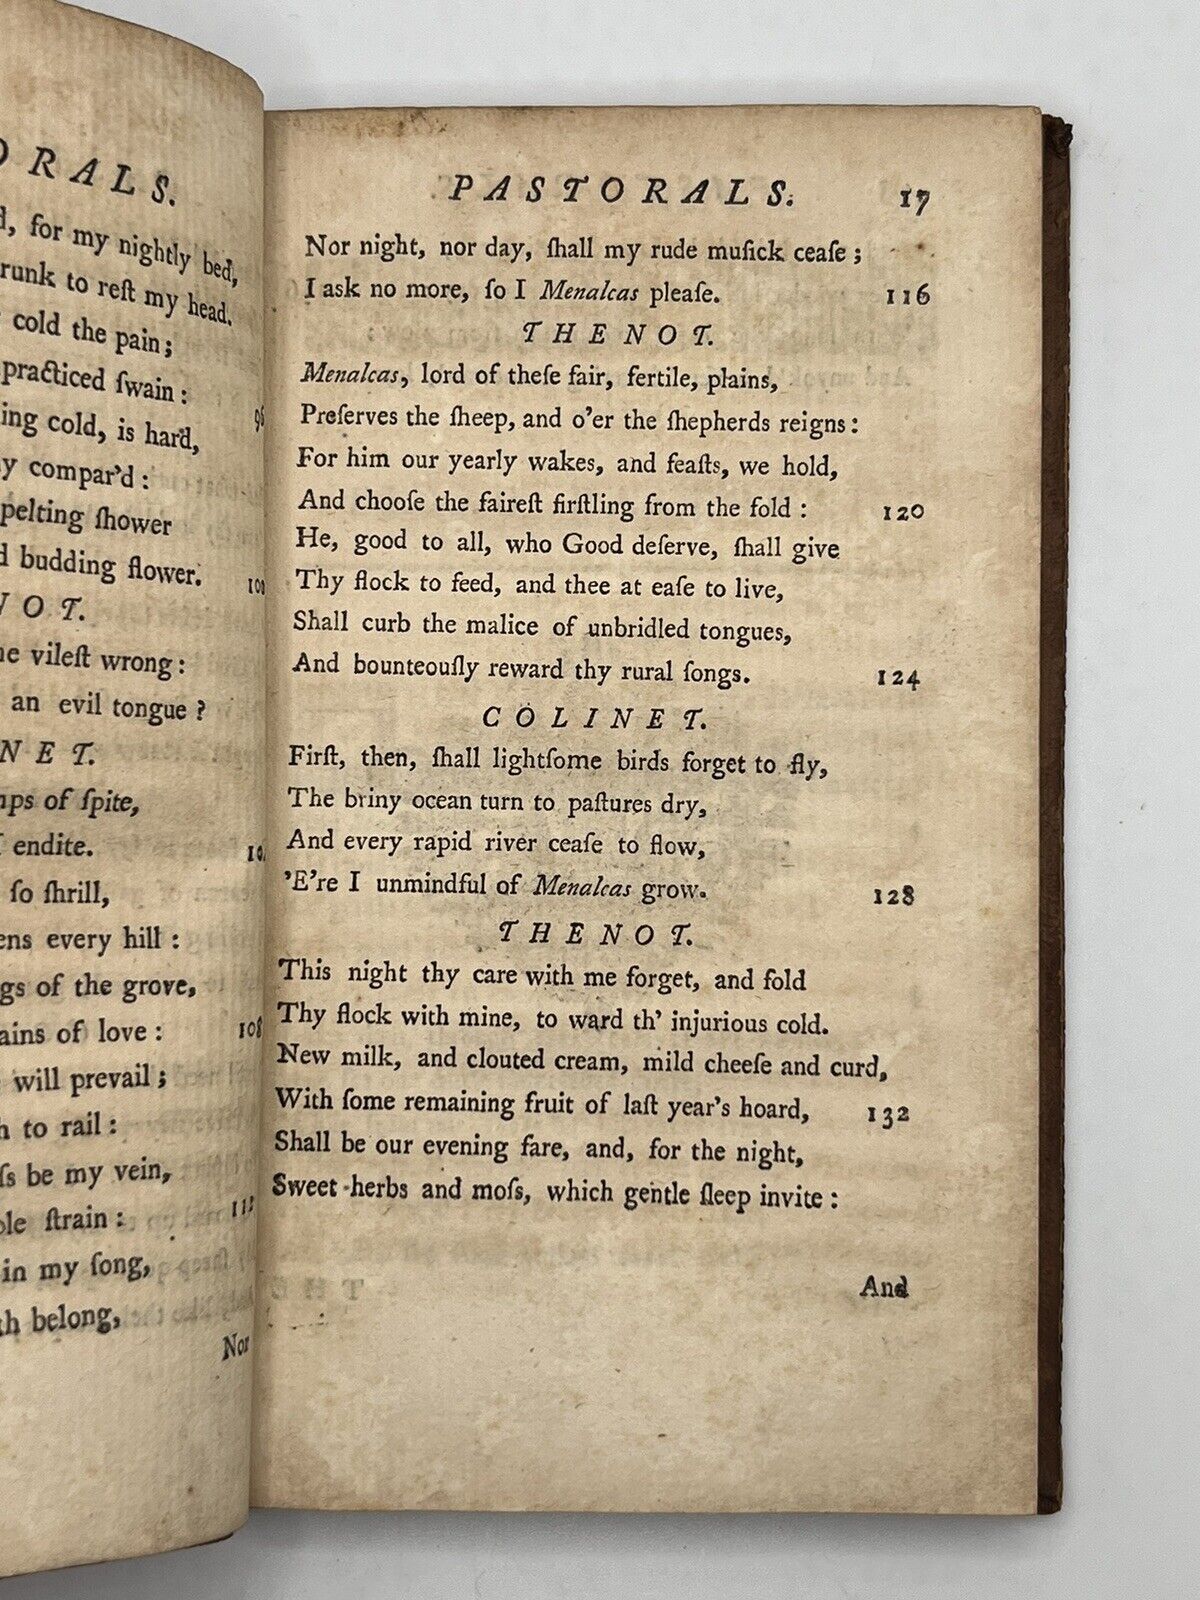 ORALS.
for my nightly bed,
runk to reſt my head.
cold the pain;
practiced ſwain:
ing cold, is hard, 96
compar'd:
pelting ſhower
budding flower. 100
NOT.
vileſt wrong:
an evil tongue?
NET.
mps of ſpite,
endite. 10
ſo ſhrill,
ens every hill:
gs of the grove,
ains of love: 108
will prevail;
to rail:
ſs be my vein,
ble ſtrain: 112
in my ſong,
th belong,
Nor
PASTORALS. 17
Nor night, nor day, ſhall my rude muſick ceaſe;
I ask no more, ſo I Menalcas pleaſe. 116
THENOT.
Menalcas, lord of theſe fair, fertile, plains,
Preſerves the ſheep, and o'er the ſhepherds reigns:
For him our yearly wakes, and feaſts, we hold,
And chooſe the faireſt firſtling from the fold: 120
He, good to all, who Good deſerve, ſhall give
Thy flock to feed, and thee at eaſe to live,
Shall curb the malice of unbridled tongues,
And bounteouſly reward thy rural ſongs. 124
COLINET.
Firſt, then, ſhall lightſome birds forget to fly,
The briny ocean turn to paſtures dry,
And every rapid river ceaſe to flow,
'E're I unmindful of Menalcas grow. 128
THENOT.
This night thy care with me forget, and fold
Thy flock with mine, to ward th' injurious cold.
New milk, and clouted cream, mild cheeſe and curd,
With ſome remaining fruit of laſt year's hoard, 132
Shall be our evening fare, and, for the night,
Sweet herbs and moſs, which gentle ſleep invite:
And